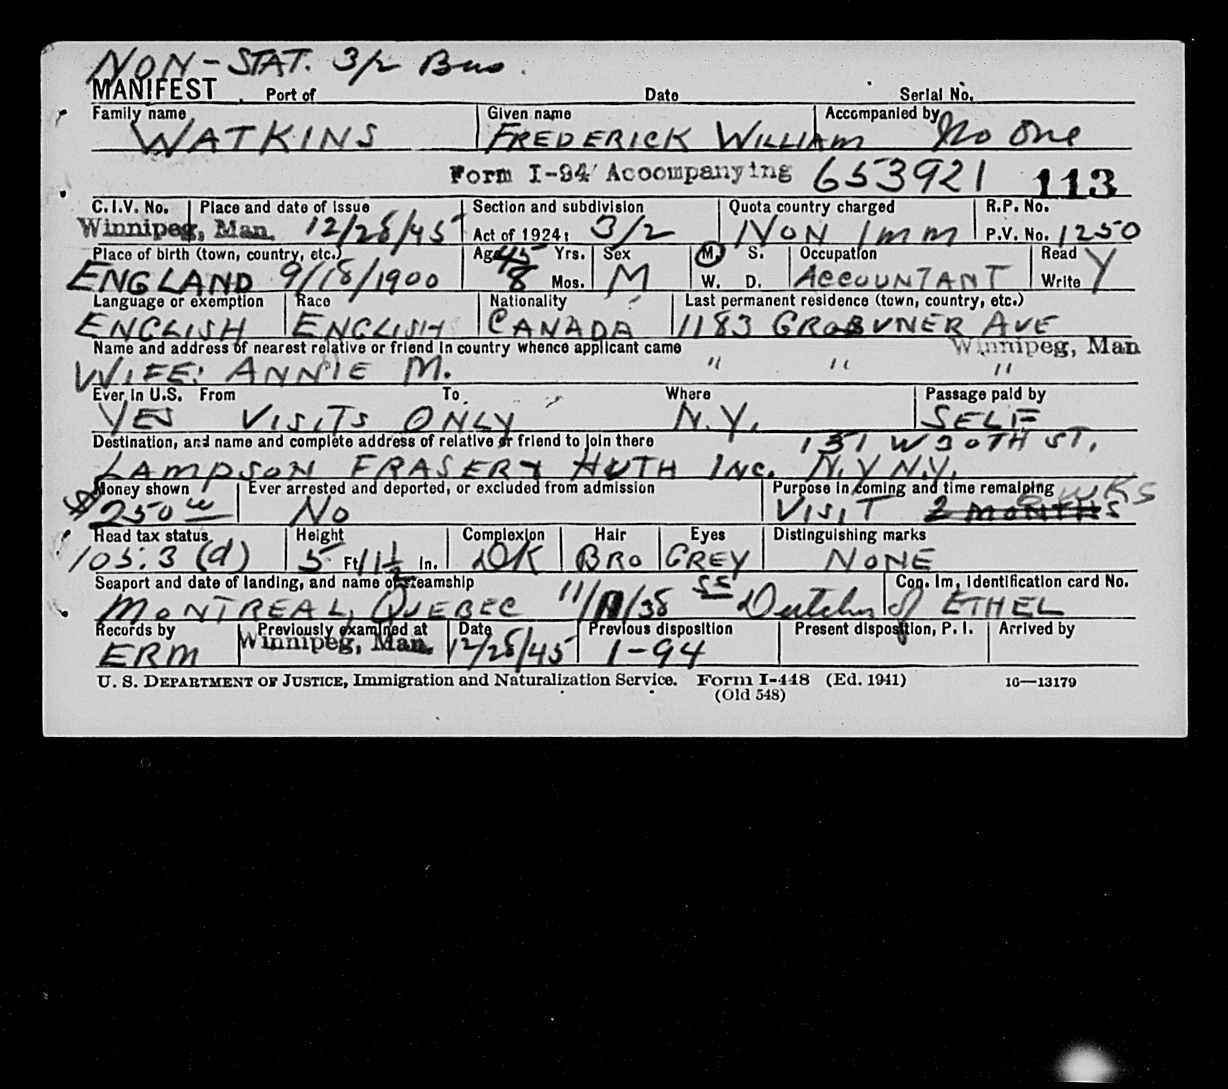 NON-STAT. 3/2 Bus.
MANIFEST Port of Date Serial No.
Family name Given name Accompanied by
WATKINS FREDERICK WILLIAM No One
Form I-94 Accompanying 653921 113
C.I.V. No. Place and date of issue Section and subdivision Quota country charged R.P. No.
Winnipeg, Man. 12/28/45 Act of 1924: 3/2 NON IMM P.V. No. 1250
Place of birth (town, country, etc.) Age 45 Yrs. Sex M. S. Occupation Read Y
ENGLAND 9/18/1900 8 Mos. M W. D. ACCOUNTANT Write
Language or exemption Race Nationality Last permanent residence (town, country, etc.)
ENGLISH ENGLISH CANADA 1183 GROSVNER AVE
Name and address of nearest relative or friend in country whence applicant came Winnipeg, Man
WIFE: ANNIE M. " " "
Ever in U.S. From To Where Passage paid by
YES VISITS ONLY N.Y. SELF
Destination, and name and complete address of relative or friend to join there 151 W 30TH ST.
LAMPSON FRASERY HUTH INC. N.Y N.Y.
Money shown Ever arrested and deported, or excluded from admission Purpose in coming and time remaining
$250 00 NO VISIT 2 MONTHS WKS
Head tax status Height Complexion Hair Eyes Distinguishing marks
105.3 (d) 5 Ft. 11½ In. DK BRO GREY NONE
Seaport and date of landing, and name of steamship Con. Im. Identification card No.
MONTREAL, QUEBEC 11/11/38 SS Dutchess of ETHEL
Records by Previously examined at Date Previous disposition Present disposition, P. I. Arrived by
ERM Winnipeg, Man. 12/28/45 I-94
U. S. DEPARTMENT OF JUSTICE, Immigration and Naturalization Service. Form I-448 (Ed. 1941) 16—13179
(Old 548)